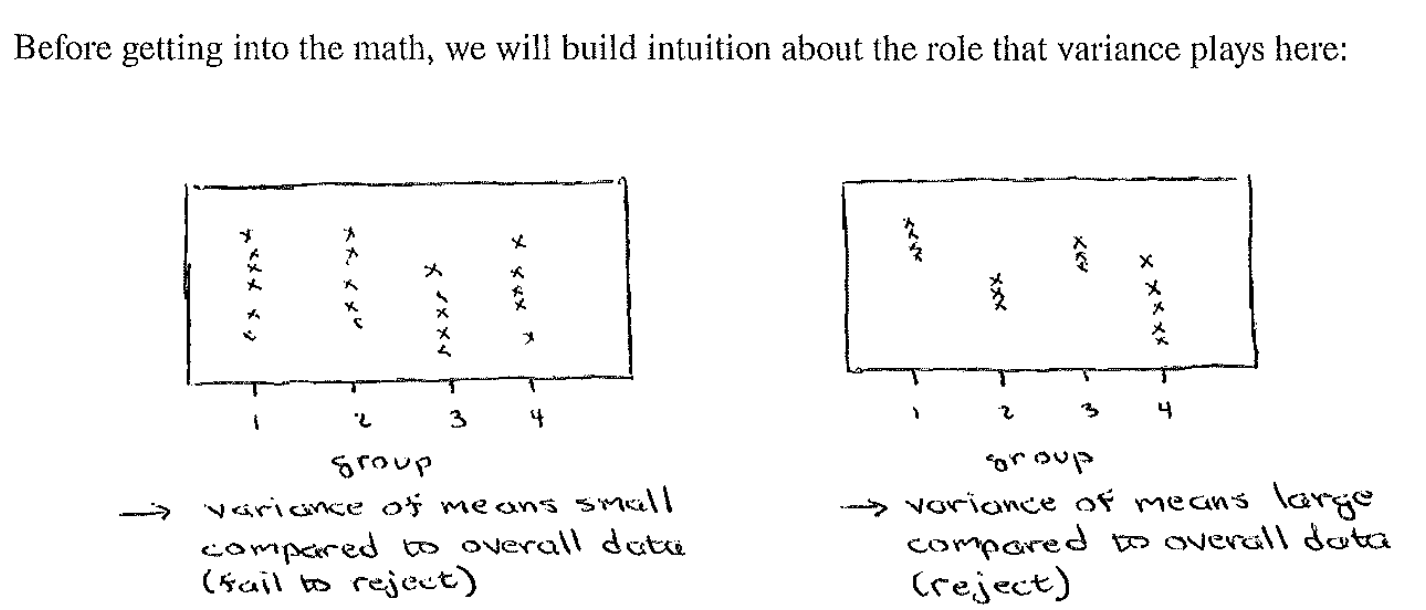 Before getting into the math, we will build intuition about the role that variance plays here:
1 2 3 4
group
→ variance of means small
compared to overall data
(fail to reject)
1 2 3 4
group
→ variance of means large
compared to overall data
(reject)